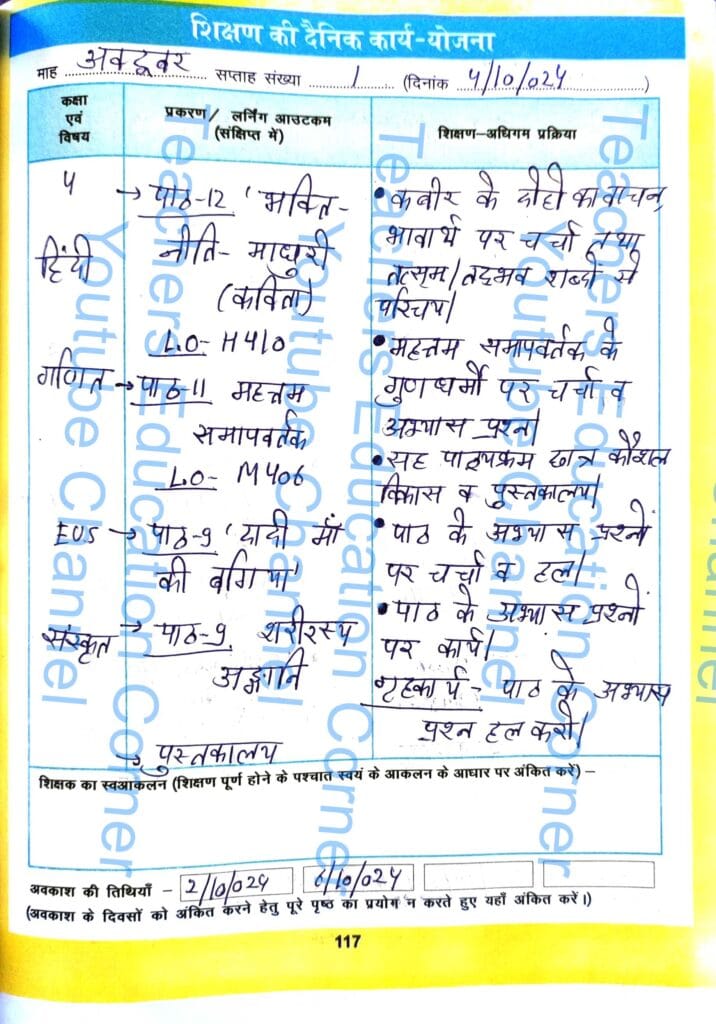 शिक्षण की दैनिक कार्य-योजना
माह अक्टूबर सप्ताह संख्या 1 (दिनांक 4/10/024)
कक्षा एवं विषय
प्रकरण/ लर्निंग आउटकम (संक्षिप्त में)
शिक्षण-अधिगम प्रक्रिया
5
हिंदी
→ पाठ-12 'भक्ति-
नीति- माधुरी
(कविता)
L.O- H410
• कबीर के दोहों का वाचन,
भावार्थ पर चर्चा तथा
तत्सम/तद्भव शब्दों से
परिचय।
गणित → पाठ-11 महत्तम
समापवर्तक
L.O- M406
• महत्तम समापवर्तक के
गुणधर्मों पर चर्चा व
अभ्यास प्रश्न।
• सह पाठ्यक्रम छात्र कौशल
विकास व पुस्तकालय।
EVS → पाठ-9 'दादी माँ
की बगिया'
• पाठ के अभ्यास प्रश्नों
पर चर्चा व हल।
संस्कृत → पाठ-9 शरीरस्य
अङ्गानि
• पाठ के अभ्यास प्रश्नों
पर कार्य।
गृहकार्य - पाठ के अभ्यास
प्रश्न हल करो।
→ पुस्तकालय
शिक्षक का स्वआकलन (शिक्षण पूर्ण होने के पश्चात स्वयं के आकलन के आधार पर अंकित करें) –
अवकाश की तिथियाँ - 2/10/024 6/10/024
(अवकाश के दिवसों को अंकित करने हेतु पूरे पृष्ठ का प्रयोग न करते हुए यहाँ अंकित करें।)
117
Teachers Education Corner
Youtube Channel
Teachers Education Corner
Youtube Channel
Teachers Education Corner
Youtube Channel